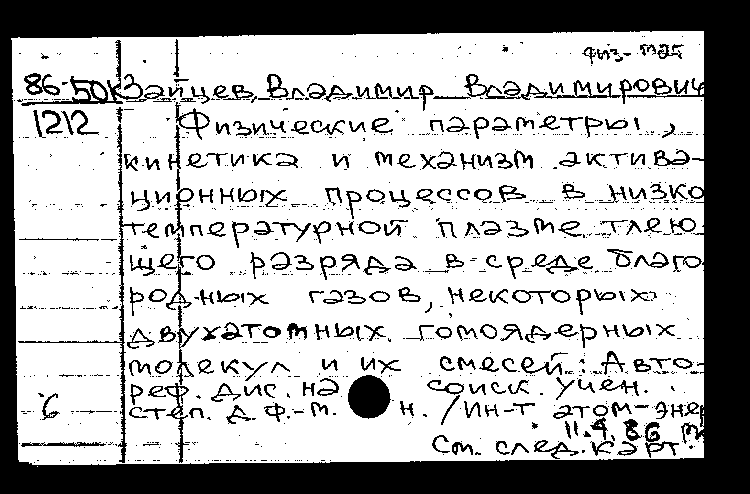 физ-мат
86-50к Зайцев, Владимир Владимирович
1212 Физические параметры,
кинетика и механизм актива-
ционных процессов в низко
температурной плазме тлею
щего разряда в среде благо
родных газов, некоторых
двухатомных гомоядерных
молекул и их смесей: Авто-
реф. дис. на соиск. учен.
степ. д. ф.-м. н. / Ин-т атом-энер
6
11.4.86
См. след. карт.